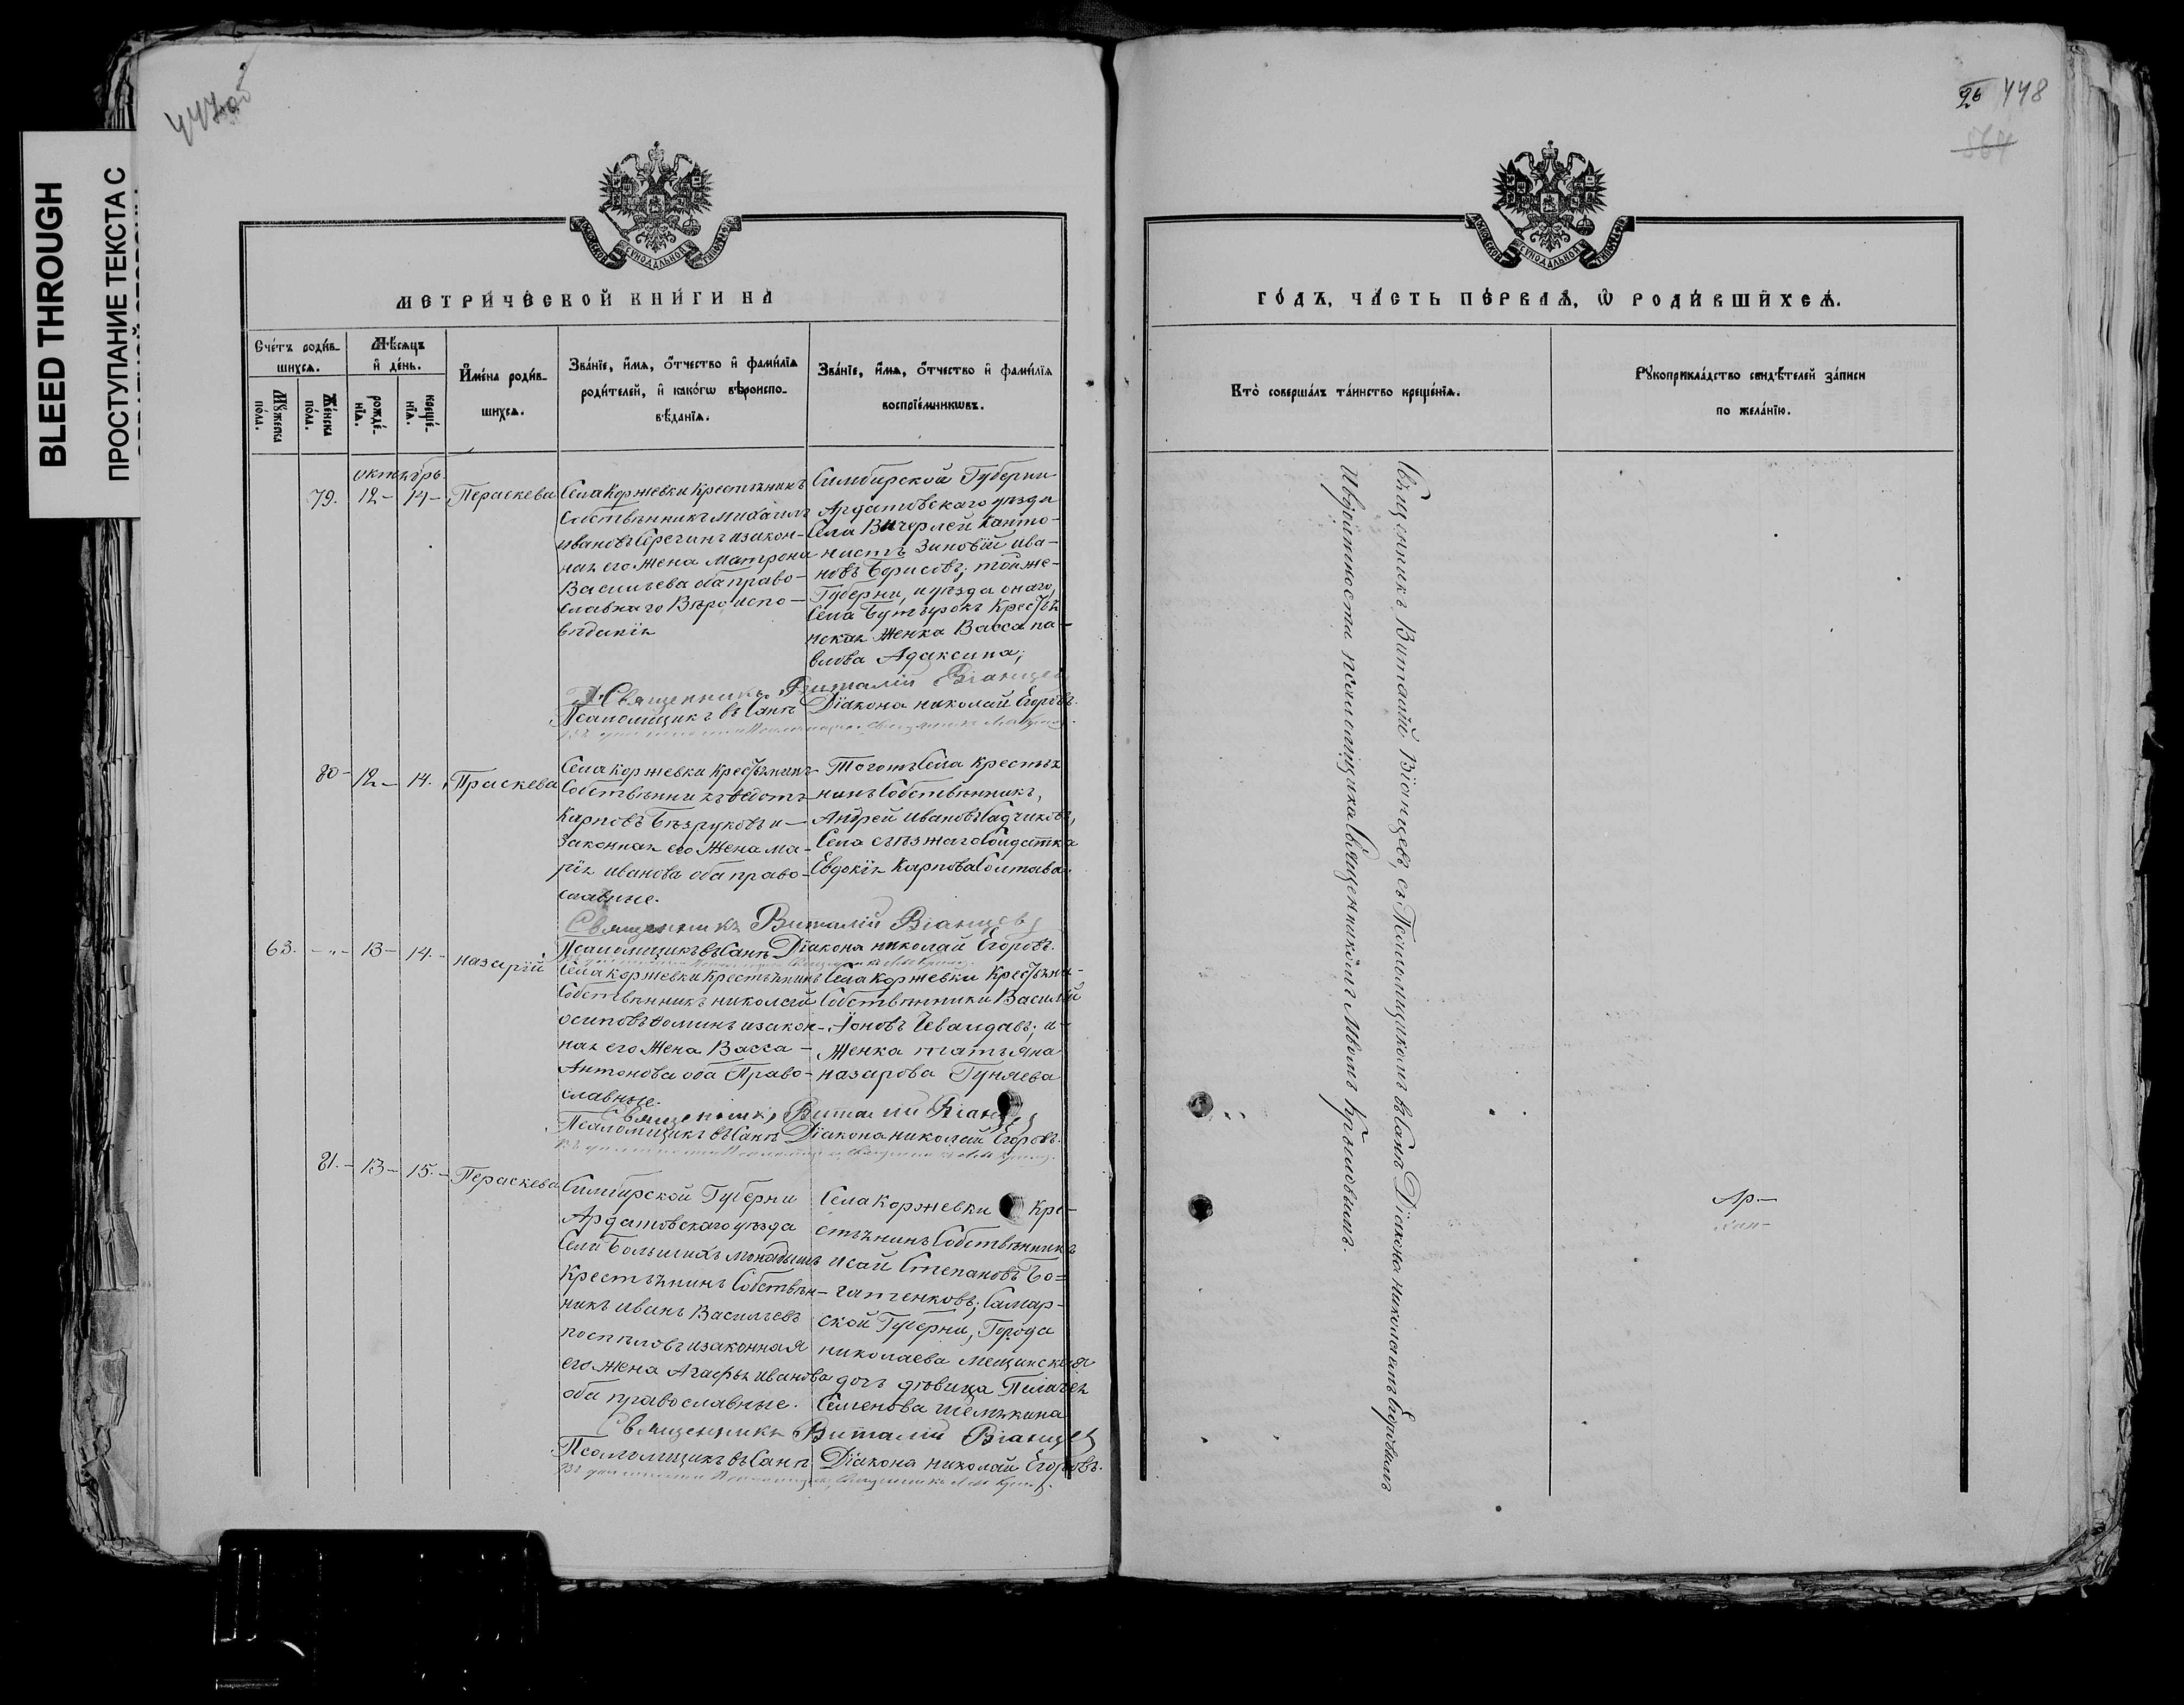 447 об
BLEED THROUGH
ПРОСТУПАНИЕ ТЕКСТА С
МОСКОВСКОЙ СѴНОДАЛЬНОЙ ТИПОГРАФІИ
МЕТРИ́ЧЕСКОЙ КНИ́ГИ НА
Сче́тъ роди́в-
шихсѧ.
Мꙋ́жеска
по́ла.
Же́нска
по́ла.
Мѣ́сѧцъ
и҆ де́нь.
рожде́-
нїѧ.
креще́-
нїѧ.
И҆мена̀ роди́в-
шихсѧ.
Зва́нїе, и҆́мѧ, ѻ҆́тчество и҆ фамѝлїѧ
роди́телей, и҆ како́гѡ вѣроиспо-
вѣ́данїѧ.
Зва́нїе, и҆́мѧ, ѻ҆́тчество и҆ фамѝлїѧ
воспрїе́мникѡвъ.
октябрь
79. 12 - 14 - Пераскева
Села Коржевки Крестьянинъ
Собственникъ Михаилъ
Ивановъ Серегинъ и закон-
ная его жена Матрона
Васильева оба право-
славнаго Вѣроиспо-
вѣданія
Симбирской Губерніи
Ардатовскаго уѣзда
Села Вичерлей Канто-
нистъ Зиновій Ива-
новъ Борисовъ; той же-
Губерни, и уѣзда онаго,
Села Бутырокъ Крестья
нская Женка Васса Па-
влова Адаксина;
Священникъ Виталій Віанцевъ
Псаломщикъ въ Санѣ Діакона Николай Егоровъ.
80 - 12 - 14. Праскева
Села Коржевки Крестьянинъ
Собственникъ Ѳедотъ
Карповъ Безруковъ и -
Законная его Жена Ма-
рія Иванова оба право-
славные.
Тогожъ Села Крестья
нинъ Собственникъ,
Андрей Ивановъ Садчиковъ,
Села Съѣзжаго Солдатка
Евдокія Карпова
Священникъ Виталій Віанцевъ
Псаломщикъ въ Санѣ Діакона Николай Егоровъ.
63. - „ - 13 - 14. - Назарій
Села Коржевки Крестьянинъ
Собственникъ Николай
Осиповъ Ѳоминъ и закон-
ная его Жена Васса -
Антонова оба Право-
славные.
Села Коржевки Крестьяни-
Собственники Василій
Іоновъ Чевайдавъ; и -
Женка Татьяна
Назарова Гуняева
Священникъ Виталій Віанцевъ
Псаломщикъ въ Санѣ Діакона Николай Егоровъ.
81. - 13 - 15. - Пераскева
Симбирской Губерни
Ардатовскаго уѣзда
Села Большихъ Монадышъ
Крестьянинъ Собствен-
никъ Иванъ Васильевъ
Поспѣловъ и законная
его жена Агафья Иванова
оба православные.
Села Коржевки Кре-
стьянинъ Собственникъ
Исай Степановъ Бо=
гатенковъ; Самар-
ской Губерни, Города
Николаева Мещинская
дочь дѣвица Пелагея
Семенова
Священникъ Виталій Віанцевъ
Псаломщикъ въ Санѣ Діакона Николай Егоровъ.
26 448
564
МОСКОВСКОЙ СѴНОДАЛЬНОЙ ТИПОГРАФІИ
ГО́ДЪ, ЧА́СТЬ ПЕ́РВАѦ, Ѡ҆ РОДИ́ВШИХСѦ.
Кто̀ соверша́лъ та́инство креще́нїѧ.
Рꙋкоприкла́дство свидѣ́телей за́писи
по жела́нїю.
Священникъ Виталій Віанцевъ, съ Псаломщикомъ въ Санѣ Діакона Николаемъ Егоровымъ
И въ должности псаломщика Священникомъ Крыловымъ.
Ар-